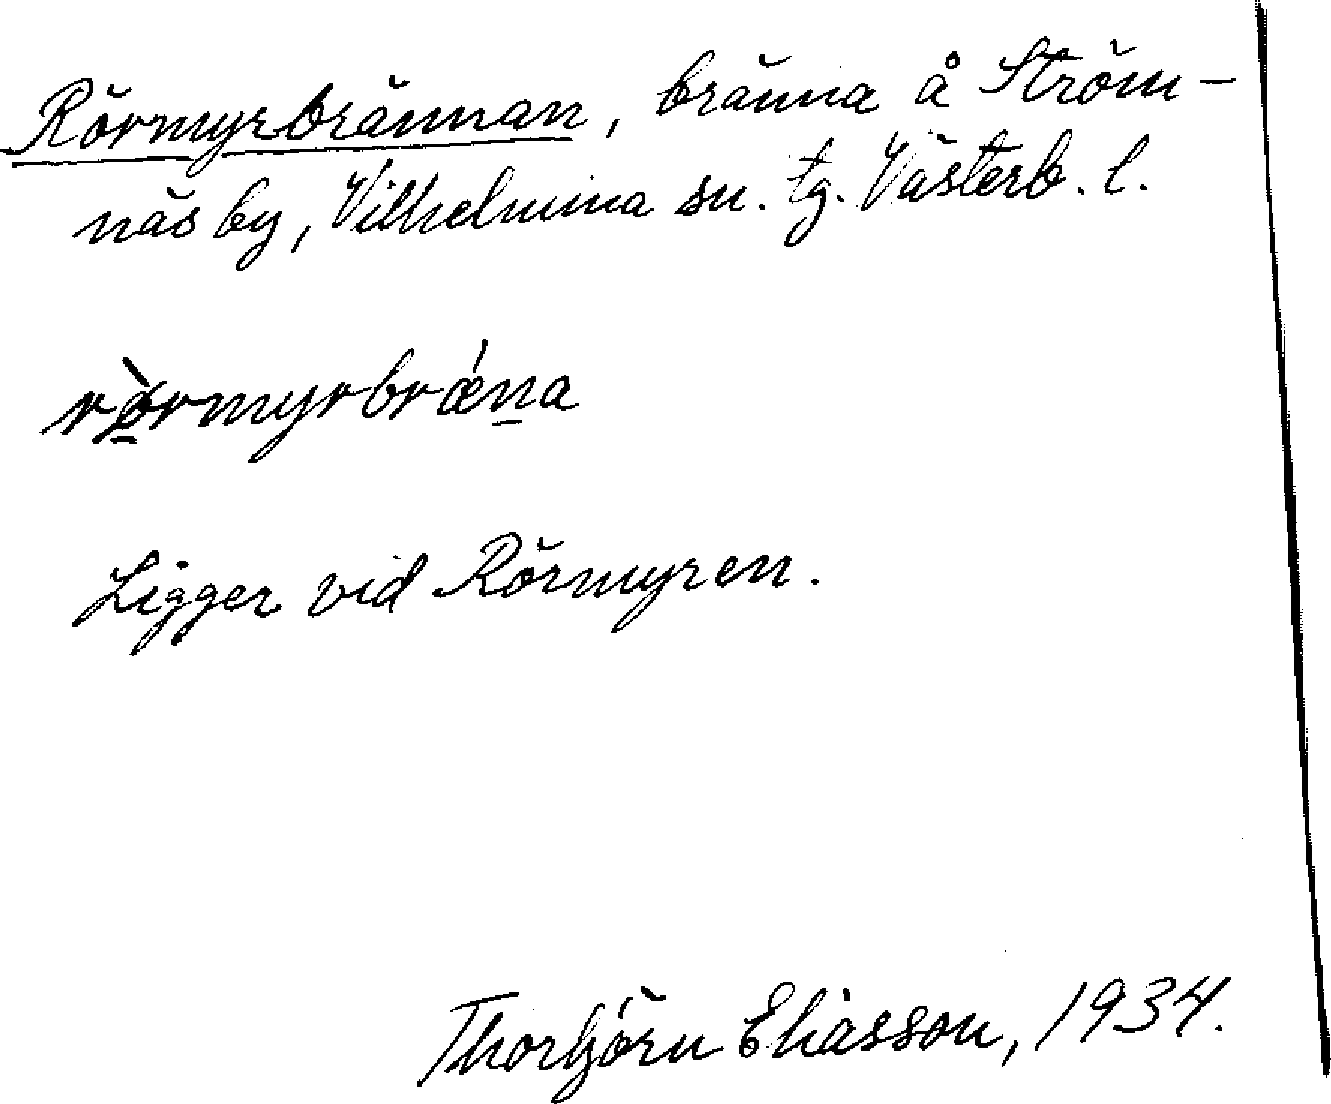 Rörmyrbrännan, bränna å Ström-
näs by, Vilhelmina sn. tg. Västerb. l.
rö̀rmyrbrǽna
Ligger vid Rörmyren.
Thorbjörn Eliasson, 1934.